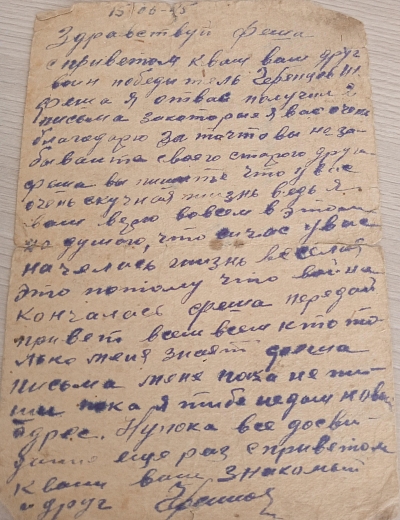 15/06-45
Здравствуй феша
с приветом к вам ваш друг
воин победитель
феша я от вас получил
письма за которые я вас очен
благодарю за то что вы не за
бываита своего старого друга
феша вы пишите что у вас
очень скучная жизнь ведь я
вам верю вовсем в этом
но думаю, что сичас у вас
началась жизнь веселая
это потому что война
кончалась феша передай
привет всем всем кто то
лько меня знает феша
письма мене пока не пи
ши пока я тибе недам новы
адрес. Ну пока все досви
дание еще раз с приветом
к вам ваш знакомый
и друг